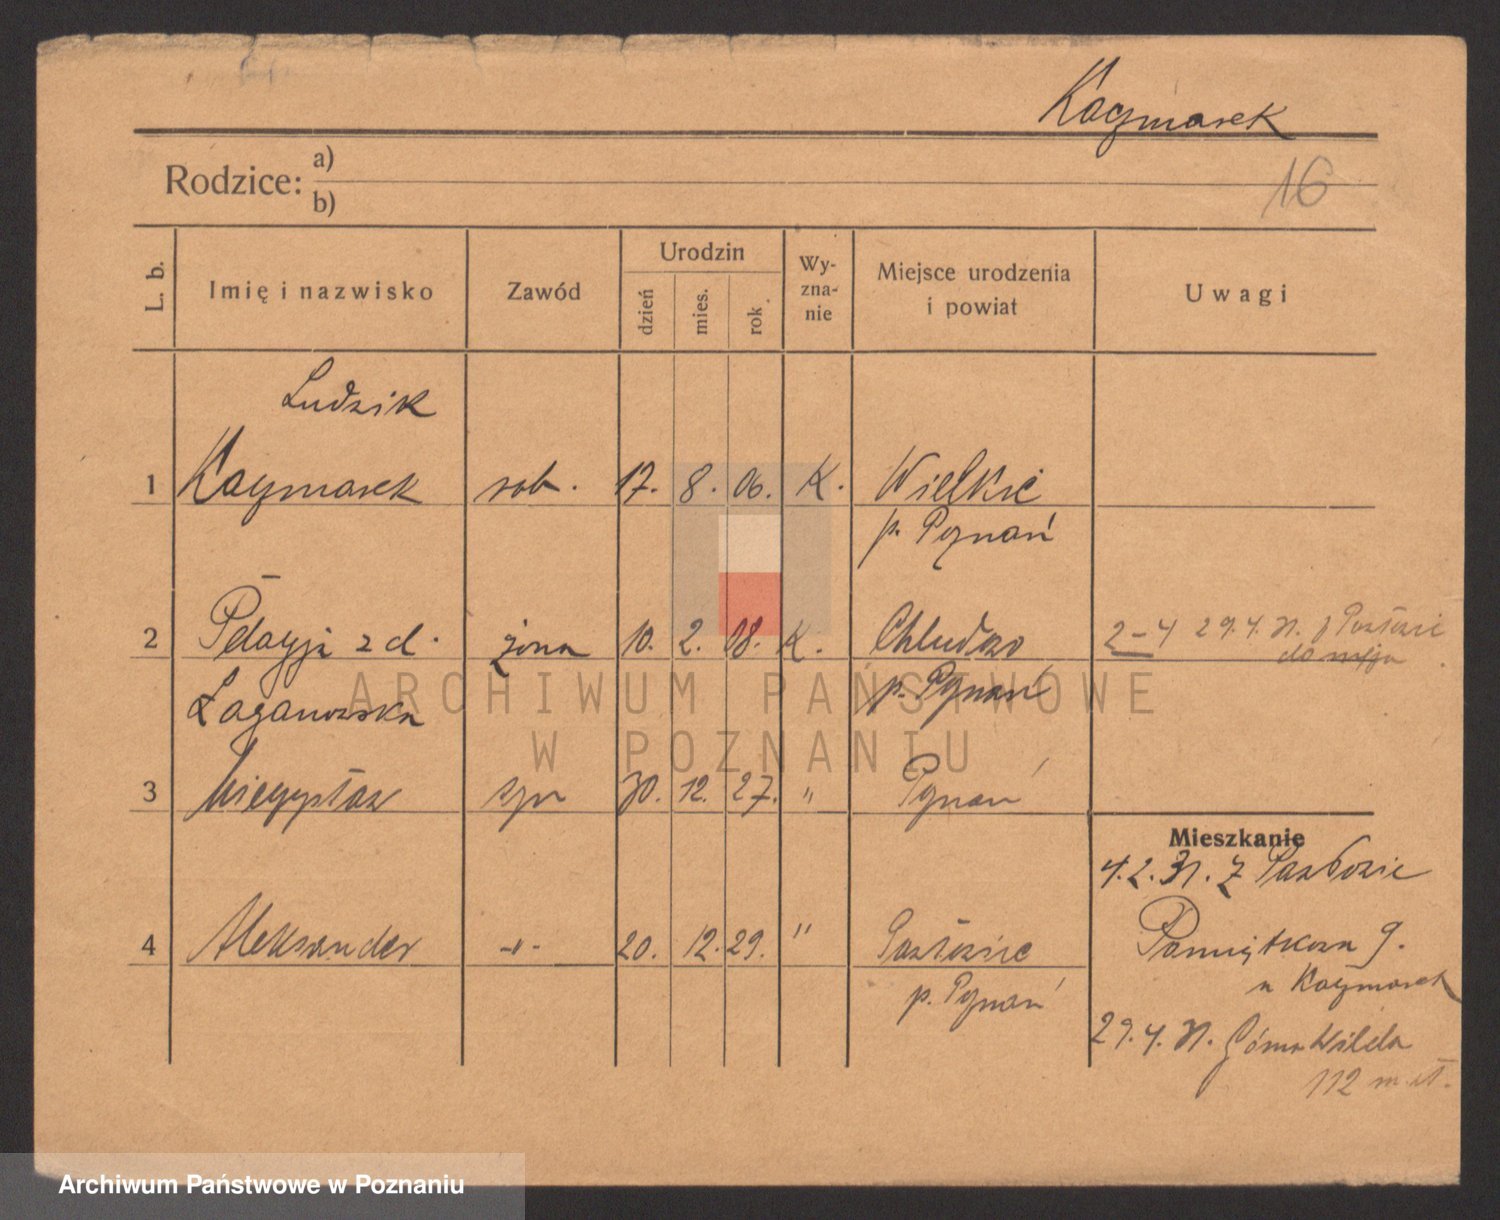 Kaczmarek
16
Rodzice: a)
b)
L. b. Imię i nazwisko Zawód Urodzin dzień mies. rok Wy-zna-nie Miejsce urodzenia i powiat Uwagi
Ludzik
1 Kaczmarek rob. 17. 8. 06. K. Wielkie
p. Poznań
2 Pelagja z d. żona 10. 2. 08. K. Chludowo
2-4 29.4.31. z
Łaganowska p. Poznań
3 Mieczysław syn 30. 12. 27. " Poznań
Mieszkanie
4.2.31. z
4 Aleksander -"- 20. 12. 29. "
Pamiątkowa 9.
p. Poznań
u Kaczmarek
29.4.31. Górna Wilda
112 m.
ARCHIWUM PAŃSTWOWE
W POZNANIU
Archiwum Państwowe w Poznaniu